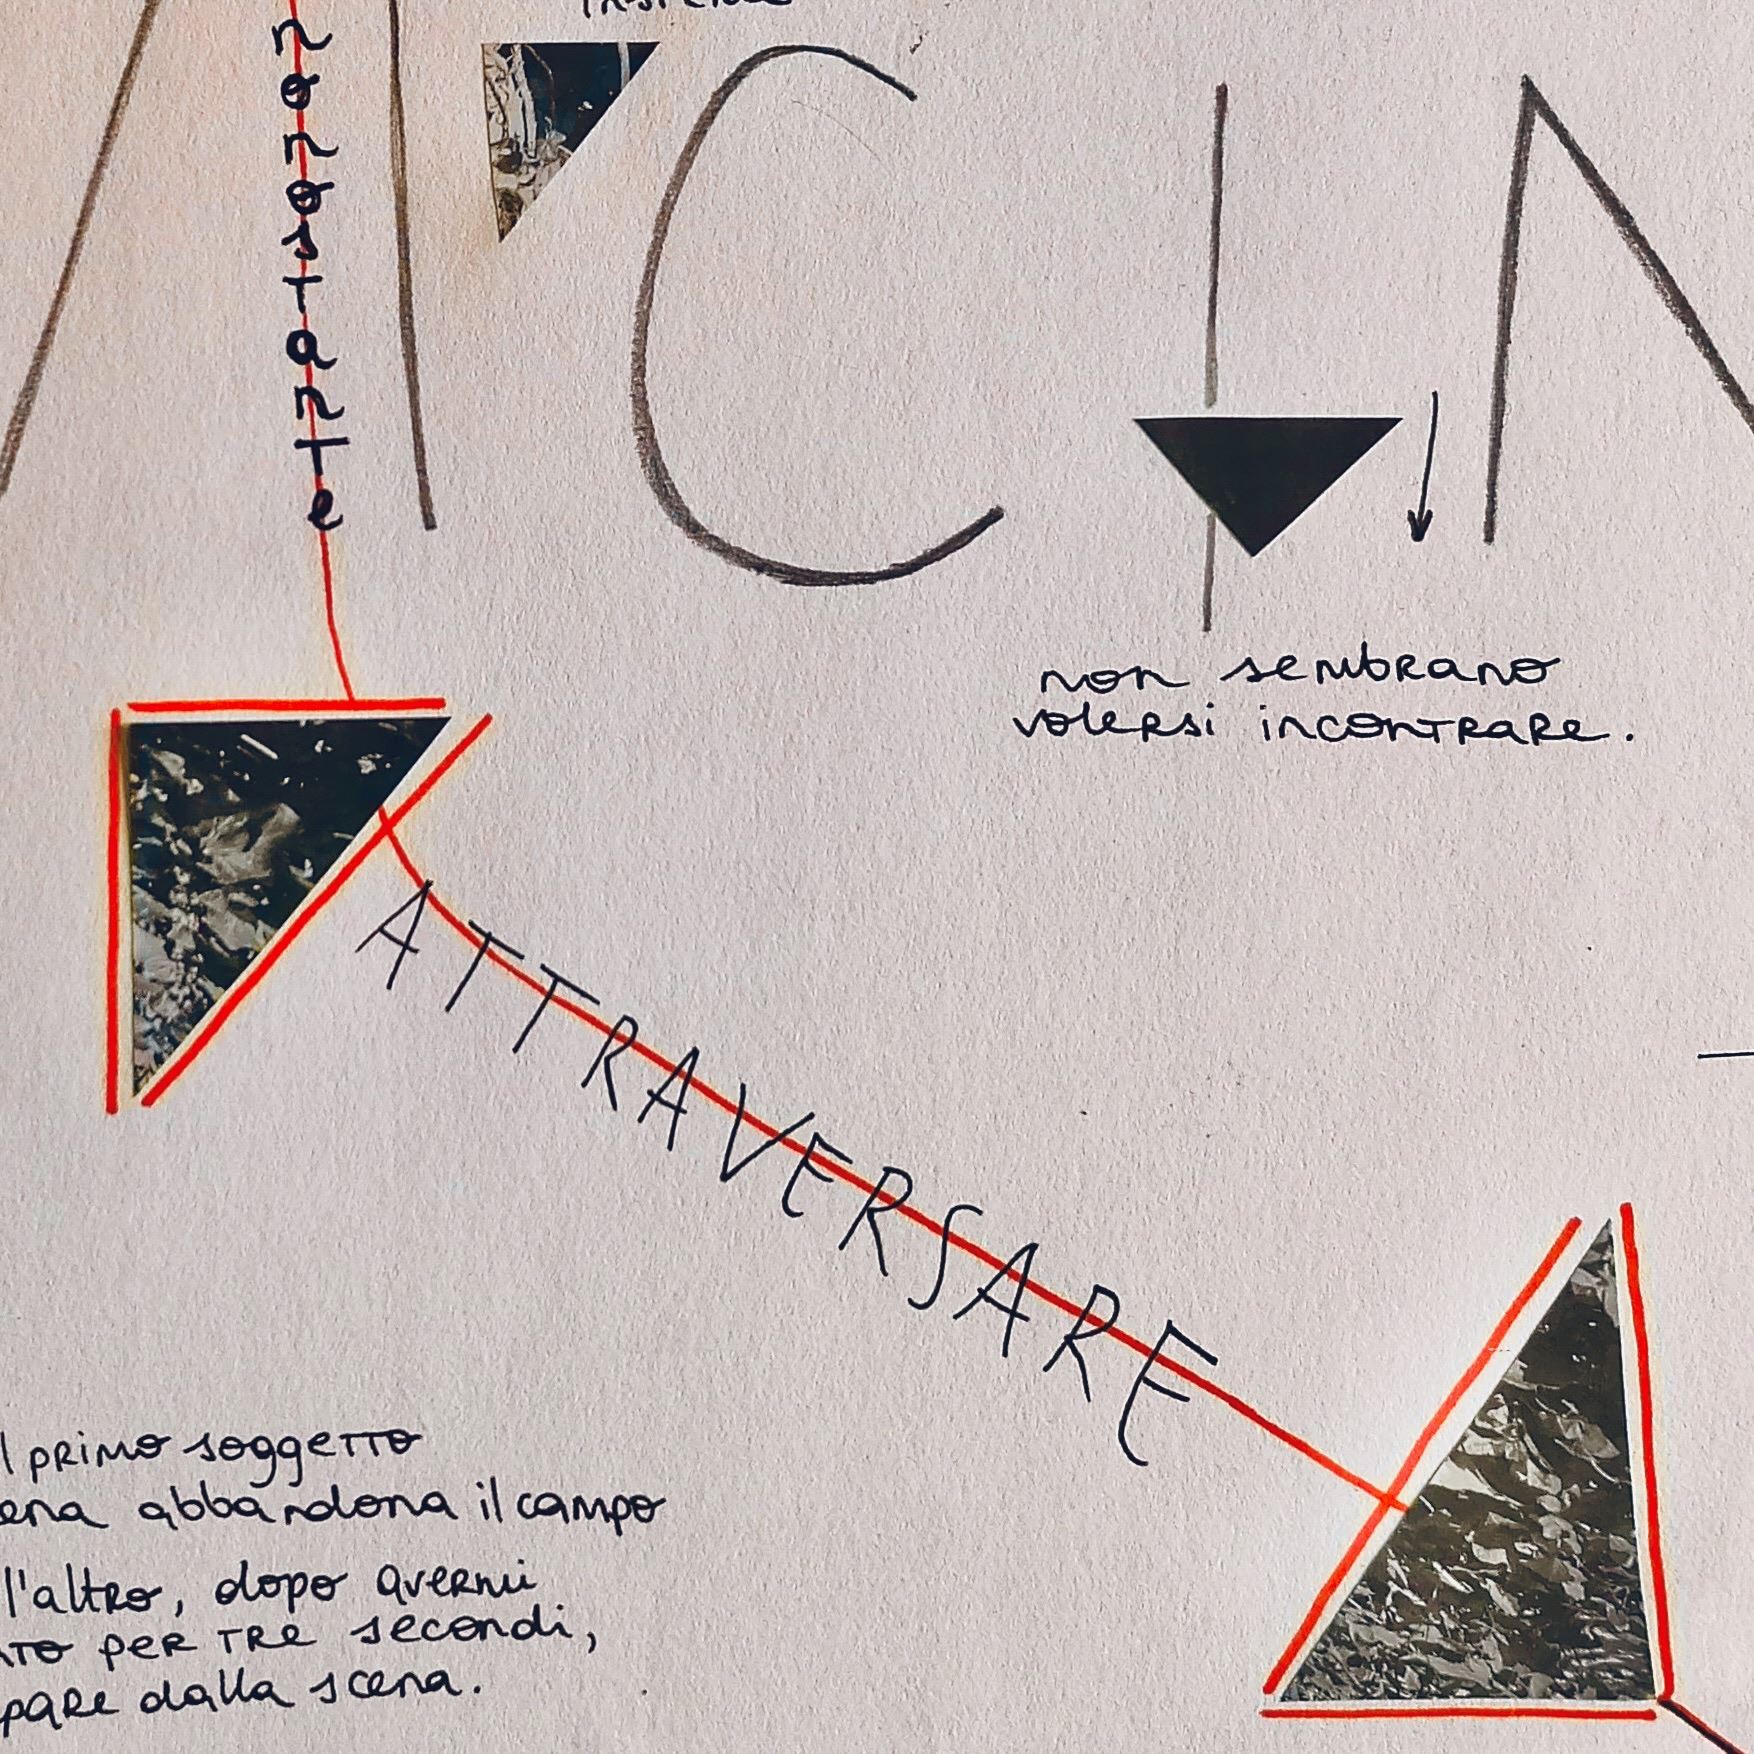 nonostante
I C I N
non sembrano
volersi incontrare.
ATTRAVERSARE
l primo soggetto
ena abbandona il campo
l'altro, dopo avermi
per tre secondi,
pare dalla scena.